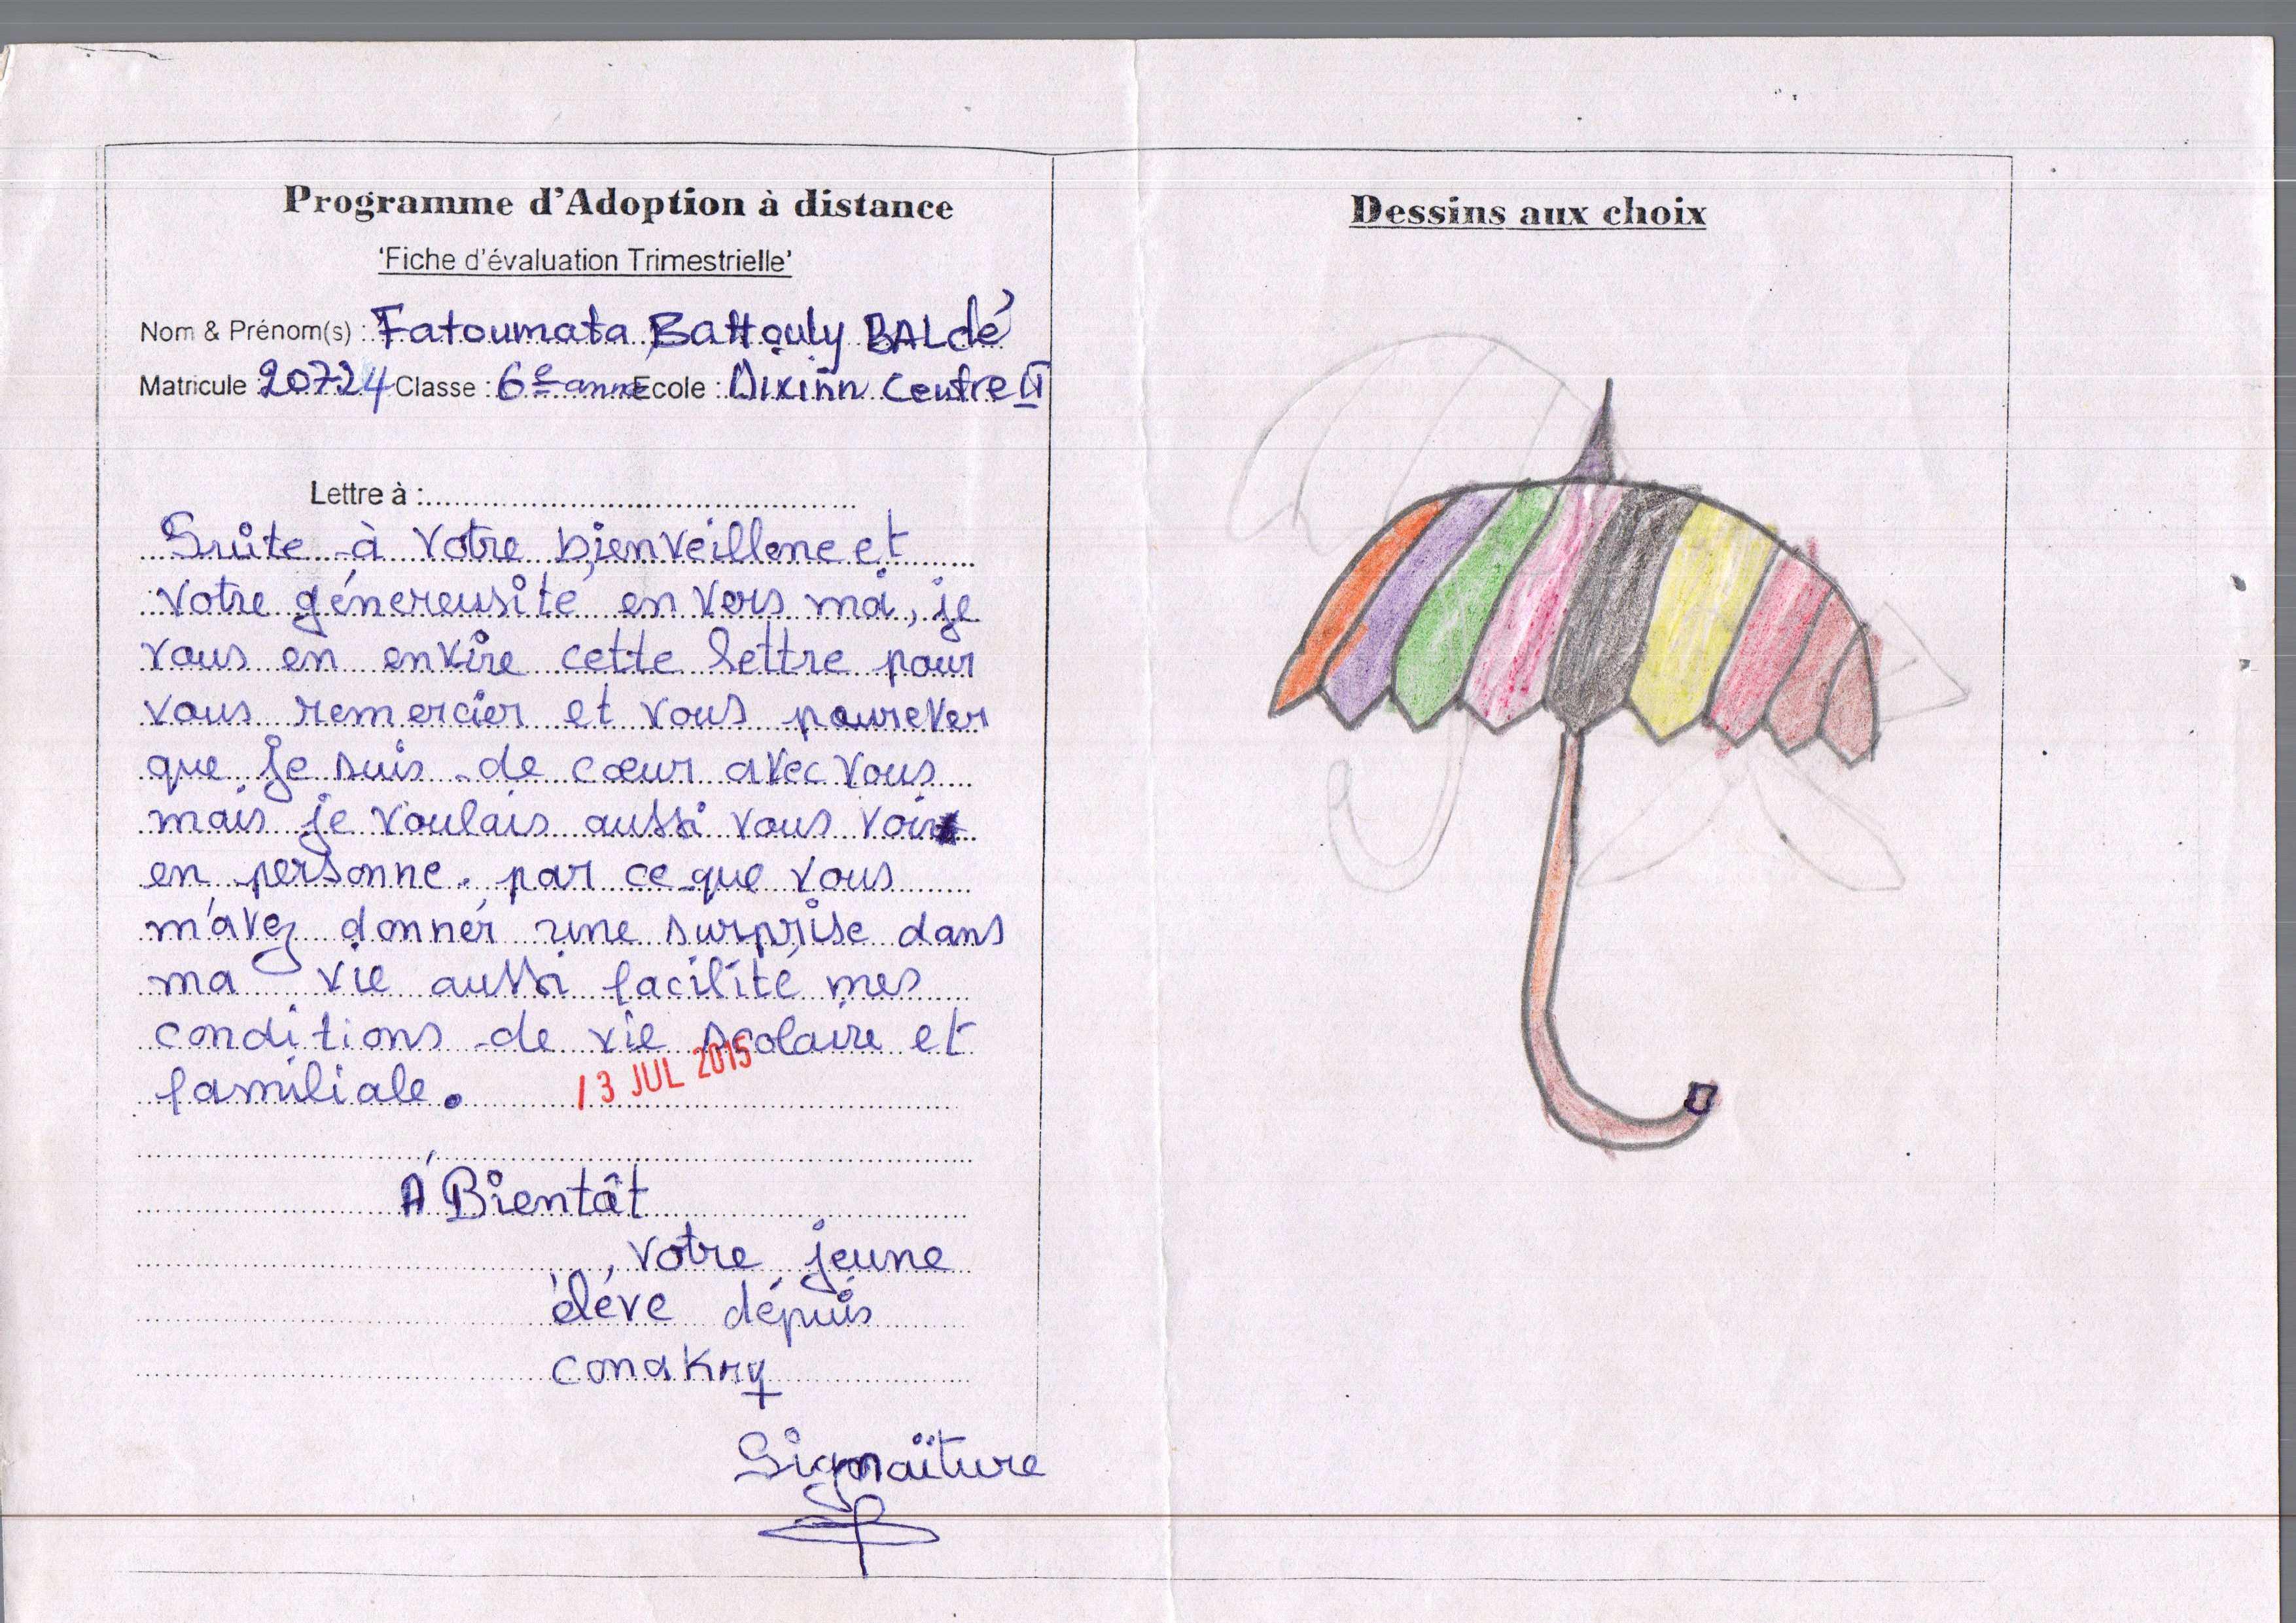 Programme d'Adoption à distance
'Fiche d'évaluation Trimestrielle'
Nom & Prénom(s) : Fatoumata Battouly BALdé
Matricule : 20724 Classe : 6e anne Ecole : Dixinn Centre II
Lettre à :
Suite à votre bienveillene et
votre génereusité en vers moi, je
vous en envire cette lettre pour
vous remercier et vous pourever
que je suis de cœur avec vous
mais je voulais aussi vous voir
en personne. par ce que vous
m'avez donner une surprise dans
ma vie aussi facilité mes
conditions de vie scolaire et
familiale.
13 JUL 2015
A Bientôt
, votre jeune
éléve dépuis
conakry
Signaïture
Dessins aux choix